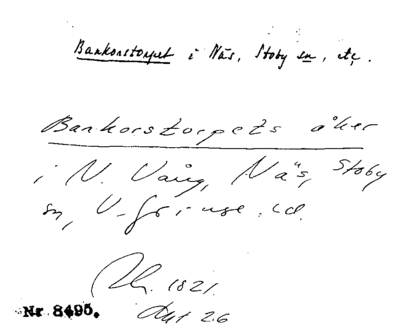 Bankorstorpet i Näs, Stoby sn, etc.
Bankorstorpets åker
i N. Vång, Näs, Stoby
sn, V-
1821.
Akt 26
Nr 8495.